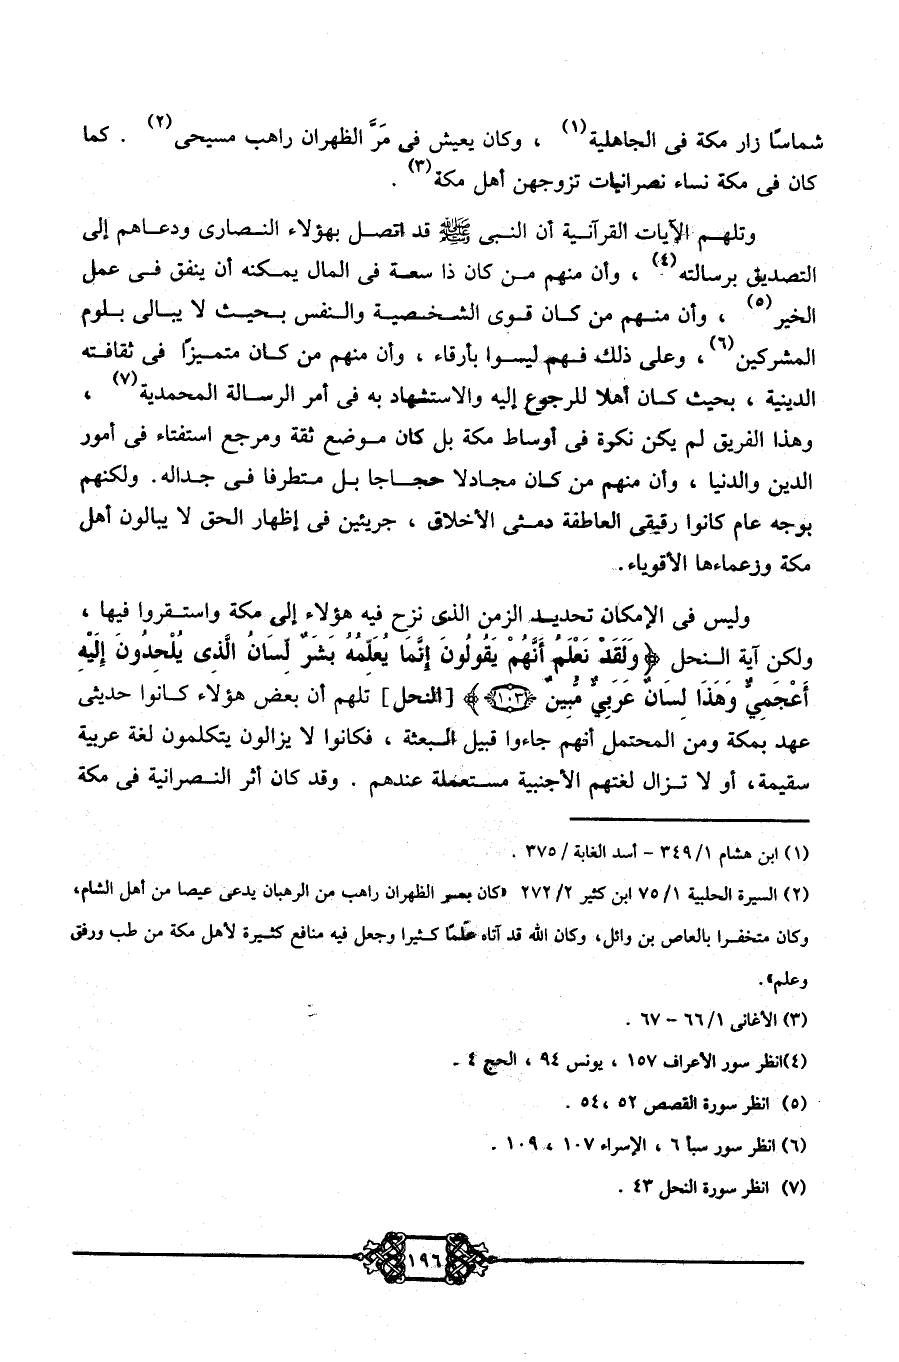 شماسًا زار مكة فى الجاهلية(١) ، وكان يعيش فى مَرَّ الظهران راهب مسيحى(٢) . كما
كان فى مكة نساء نصرانيات تزوجهن أهل مكة(٣) .
وتلهم الآيات القرآنية أن النبى ﷺ قد اتصل بهؤلاء النصارى ودعاهم إلى
التصديق برسالته(٤) ، وأن منهم من كان ذا سعة فى المال يمكنه أن ينفق فى عمل
الخير(٥) ، وأن منهم من كان قوى الشخصية والنفس بحيث لا يبالى بلوم
المشركين(٦)، وعلى ذلك فهم ليسوا بأرقاء ، وأن منهم من كان متميزًا فى ثقافته
الدينية ، بحيث كان أهلا للرجوع إليه والاستشهاد به فى أمر الرسالة المحمدية(٧) ،
وهذا الفريق لم يكن نكرة فى أوساط مكة بل كان موضع ثقة ومرجع استفتاء فى أمور
الدين والدنيا ، وأن منهم من كان مجادلا حجاجا بل متطرفا فى جداله. ولكنهم
بوجه عام كانوا رقيقى العاطفة دمثى الأخلاق ، جريئين فى إظهار الحق لا يبالون أهل
مكة وزعماءها الأقوياء.
وليس فى الإمكان تحديد الزمن الذى نزح فيه هؤلاء إلى مكة واستقروا فيها ،
ولكن آية النحل ﴿وَلَقَدْ نَعْلَمُ أَنَّهُمْ يَقُولُونَ إِنَّمَا يُعَلِّمُهُ بَشَرٌ لِّسَانُ الَّذِى يُلْحِدُونَ إِلَيْهِ
أَعْجَمِيٌّ وَهَذَا لِسَانٌ عَرَبِيٌّ مُّبِينٌ ﴿١٠٣﴾﴾ [النحل] تلهم أن بعض هؤلاء كانوا حديثى
عهد بمكة ومن المحتمل أنهم جاءوا قبيل البعثة ، فكانوا لا يزالون يتكلمون لغة عربية
سقيمة، أو لا تزال لغتهم الأجنبية مستعملة عندهم . وقد كان أثر النصرانية فى مكة
(١) ابن هشام ١/ ٣٤٩ - أسد الغابة / ٣٧٥ .
(٢) السيرة الحلبية ١/ ٧٥ ابن كثير ٢/ ٢٧٢ «كان بمر الظهران راهب من الرهبان يدعى عيصا من أهل الشام،
وكان متخفرا بالعاص بن وائل، وكان الله قد آتاه علمًا كثيرا وجعل فيه منافع كثيرة لأهل مكة من طب ورفق
وعلم».
(٣) الأغانى ١/ ٦٦ - ٦٧ .
(٤)انظر سور الأعراف ١٥٧ ، يونس ٩٤ ، الحج ٤ .
(٥) انظر سورة القصص ٥٢ ،٥٤ .
(٦) انظر سور سبأ ٦ ، الإسراء ١٠٧ ، ١٠٩ .
(٧) انظر سورة النحل ٤٣ .
١٩٦